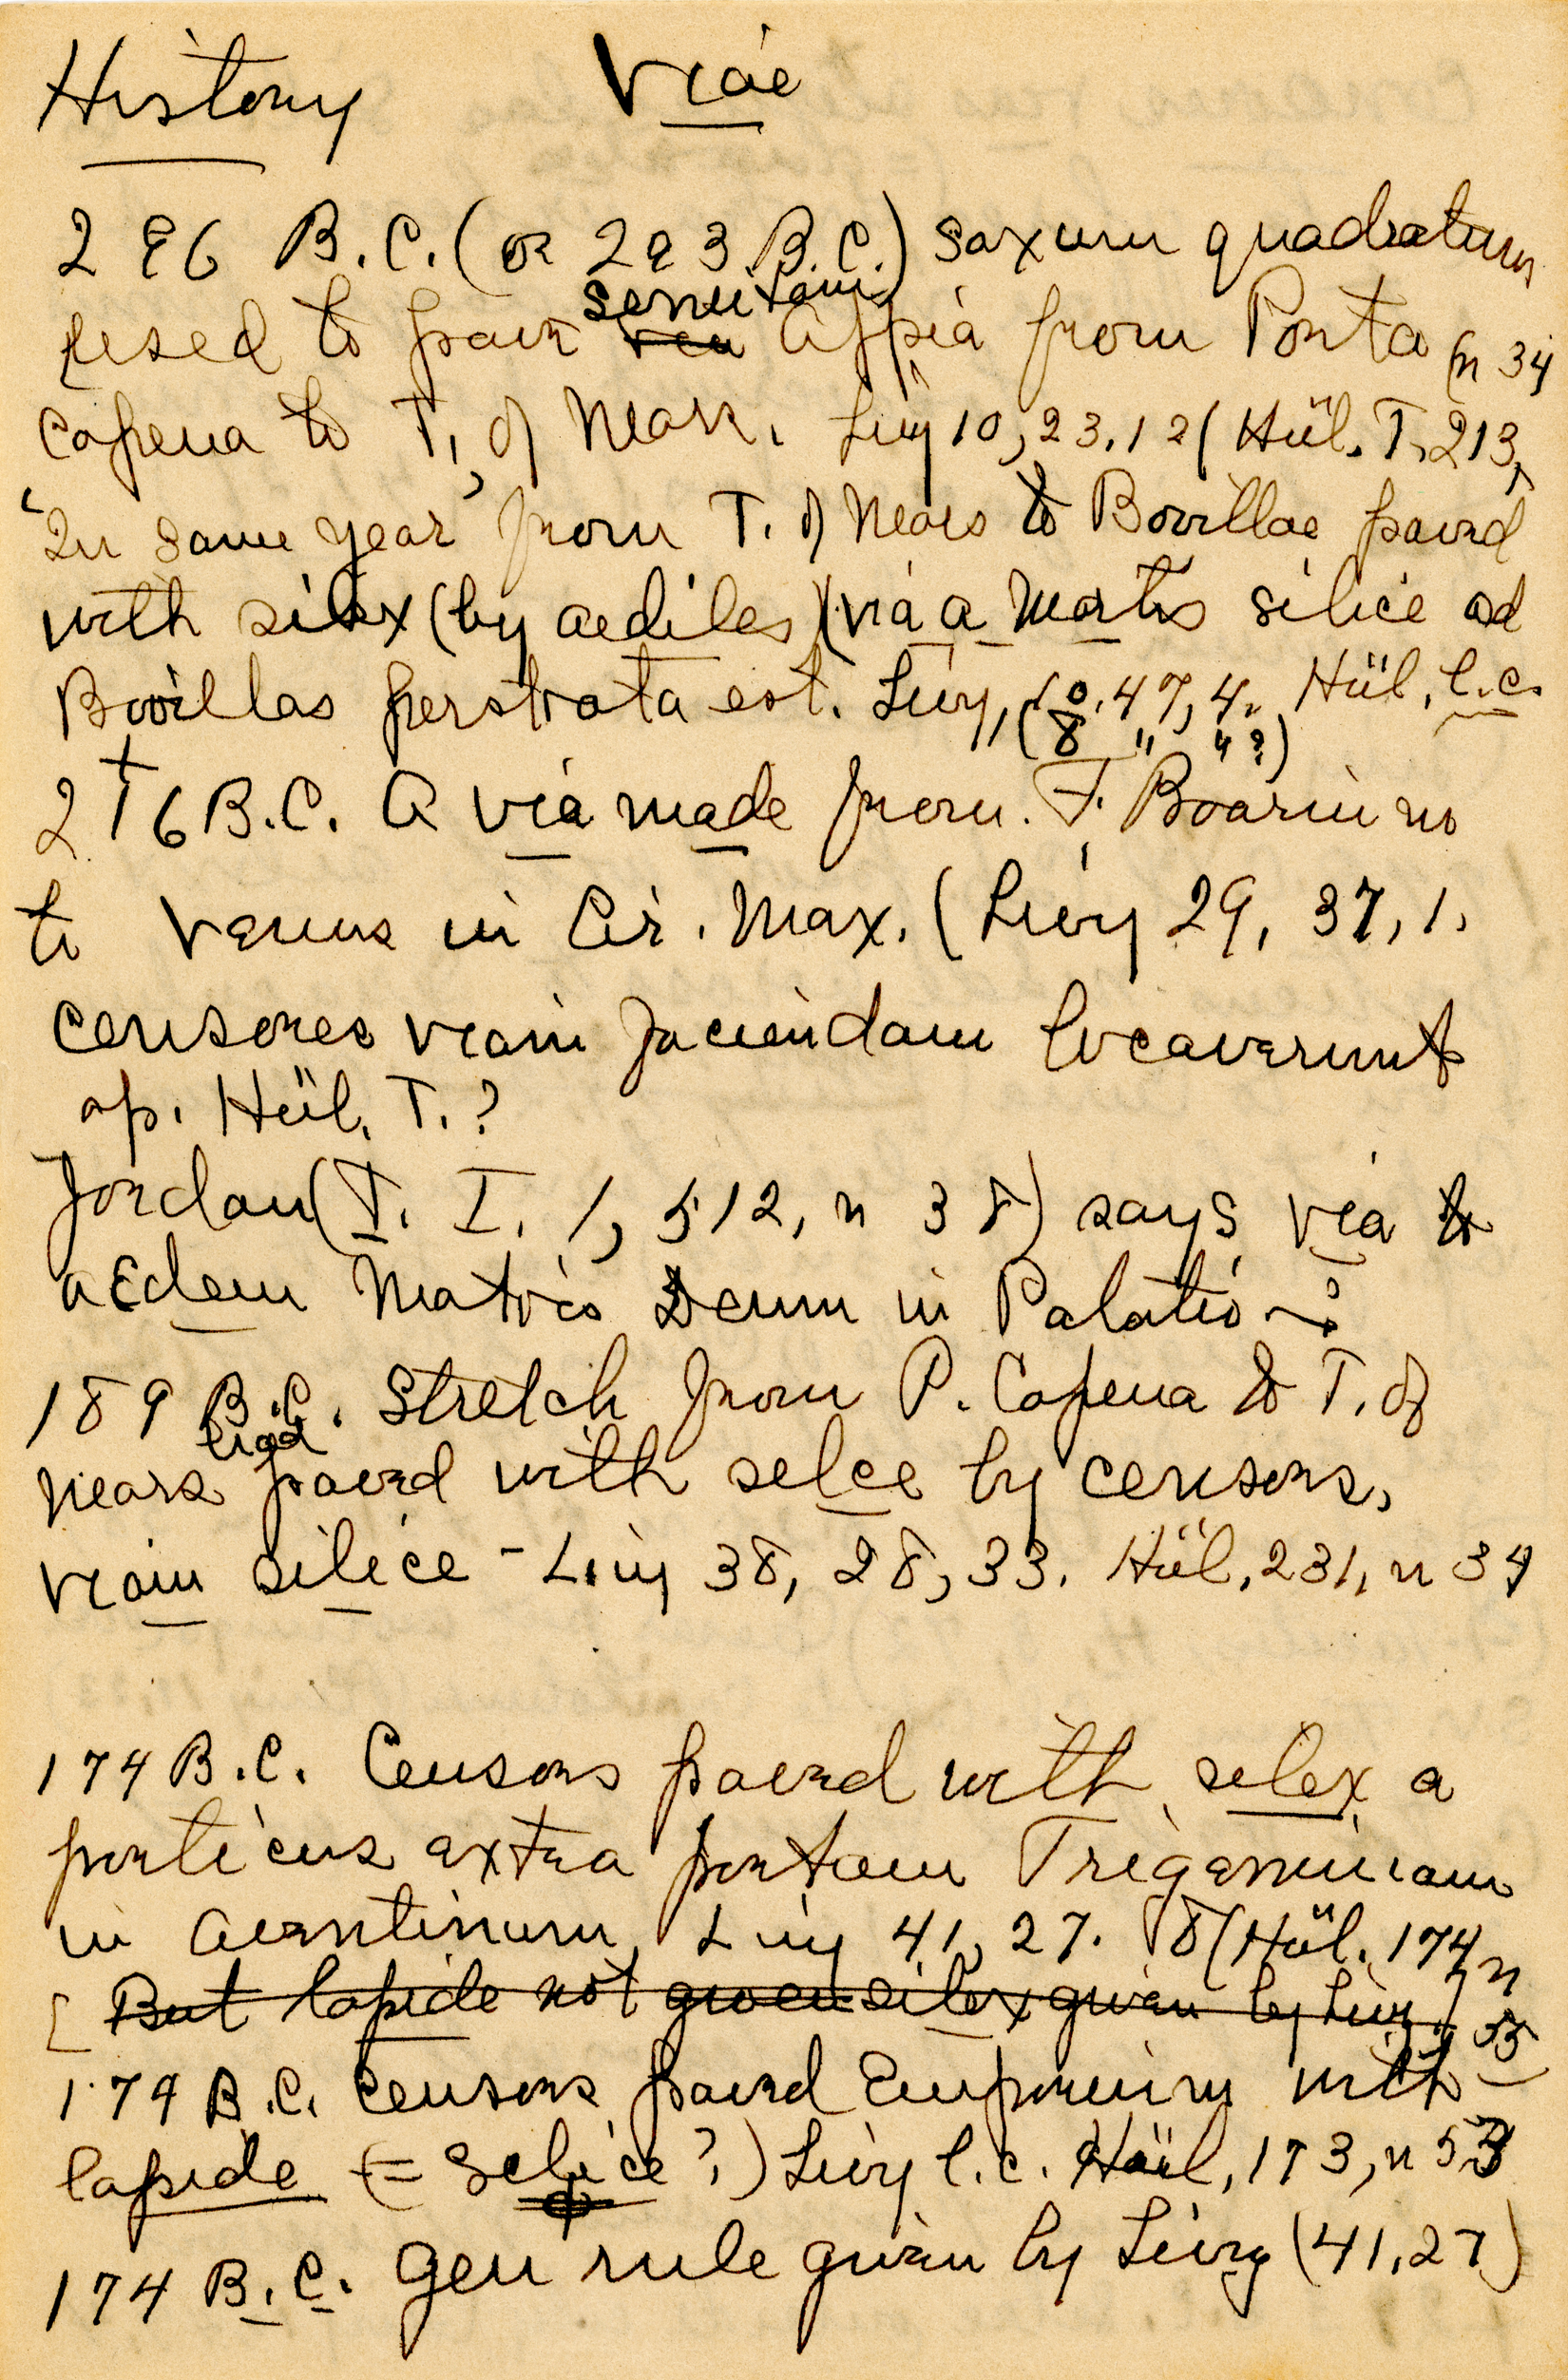 History Viae
296 B.C. (or 293 B.C.) saxum quadratum
semitam
used to pave via Appia from Porta (n 34
Capena to T. of Mars. Livy 10, 23, 12 (Hül. T. 213,
"In same year" from T. of Mars to Bovillae paved
with silex (by aediles) (via a Martis silice ad
Bovillas perstrata est. Livy, 10, 47, 4. Hül. l.c.
(8 " 4?)
216 B.C. A via made from F. Boarium
to Venus in Cir. Max. (Livy 29, 37, 1.
censores viam faciendam locaverunt
ap. Hül. T. ?
Jordan (T. I. 1, 512, n 38) says via to
aedem Matris Deum in Palatio
189 B.C. Stretch from P. Capena to T. of
Mars paved with selce by censors,
viam silice - Livy 38, 28, 33. Hül. 231, n 34
174 B.C. Censors paved with silex a
porticus extra portam Trigeminam
in Aventinum, Livy 41, 27. 8 (Hül. 174 n
[But lapide not silex given by Livy] 55
174 B.C. Censors paved Emporium with
lapide (= Selice?) Livy l.c. Hül. 173, n 53
174 B.C. Gen rule given by Livy (41, 27)